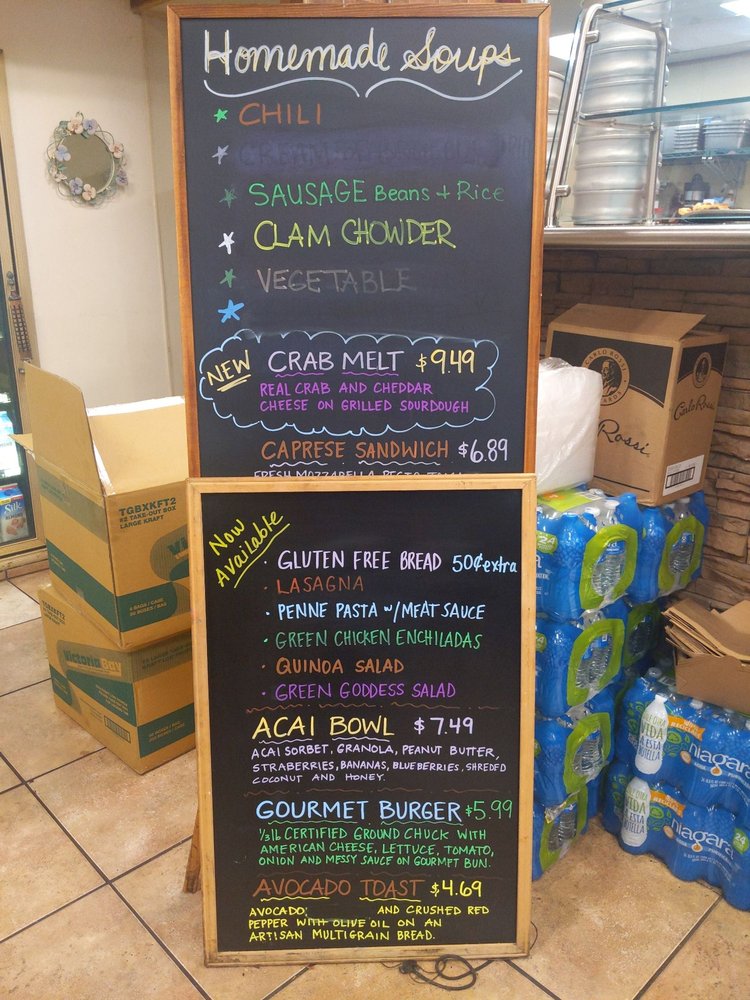 Homemade Soups
CHILI
CREAM
SAUSAGE Beans + Rice
CLAM CHOWDER
VEGETABLE
NEW
CRAB MELT $9.49
REAL CRAB AND CHEDDAR
CHEESE ON GRILLED SOURDOUGH
CAPRESE SANDWICH $6.89
FRESH MOZZARELLA PESTO
Now
Available
· GLUTEN FREE BREAD 50¢ extra
· LASAGNA
· PENNE PASTA w/MEAT SAUCE
· GREEN CHICKEN ENCHILADAS
· QUINOA SALAD
· GREEN GODDESS SALAD
ACAI BOWL $7.49
ACAI SORBET, GRANOLA, PEANUT BUTTER,
STRABERRIES, BANANAS, BLUEBERRIES, SHREDED
COCONUT AND HONEY.
GOURMET BURGER $5.99
1/3 lb CERTIFIED GROUND CHUCK WITH
AMERICAN CHEESE, LETTUCE, TOMATO,
ONION AND MESSY SAUCE ON GOURMET BUN.
AVOCADO TOAST $4.69
AVOCADO; AND CRUSHED RED
PEPPER WITH OLIVE OIL ON AN
ARTISAN MULTIGRAIN BREAD.
TGBXKFT2
#2 TAKE-OUT BOX
LARGE KRAFT
Victoria Bay
CARLO ROSSI
Carlo Rossi
Rossi
Silk
24
24
niagara
niagara